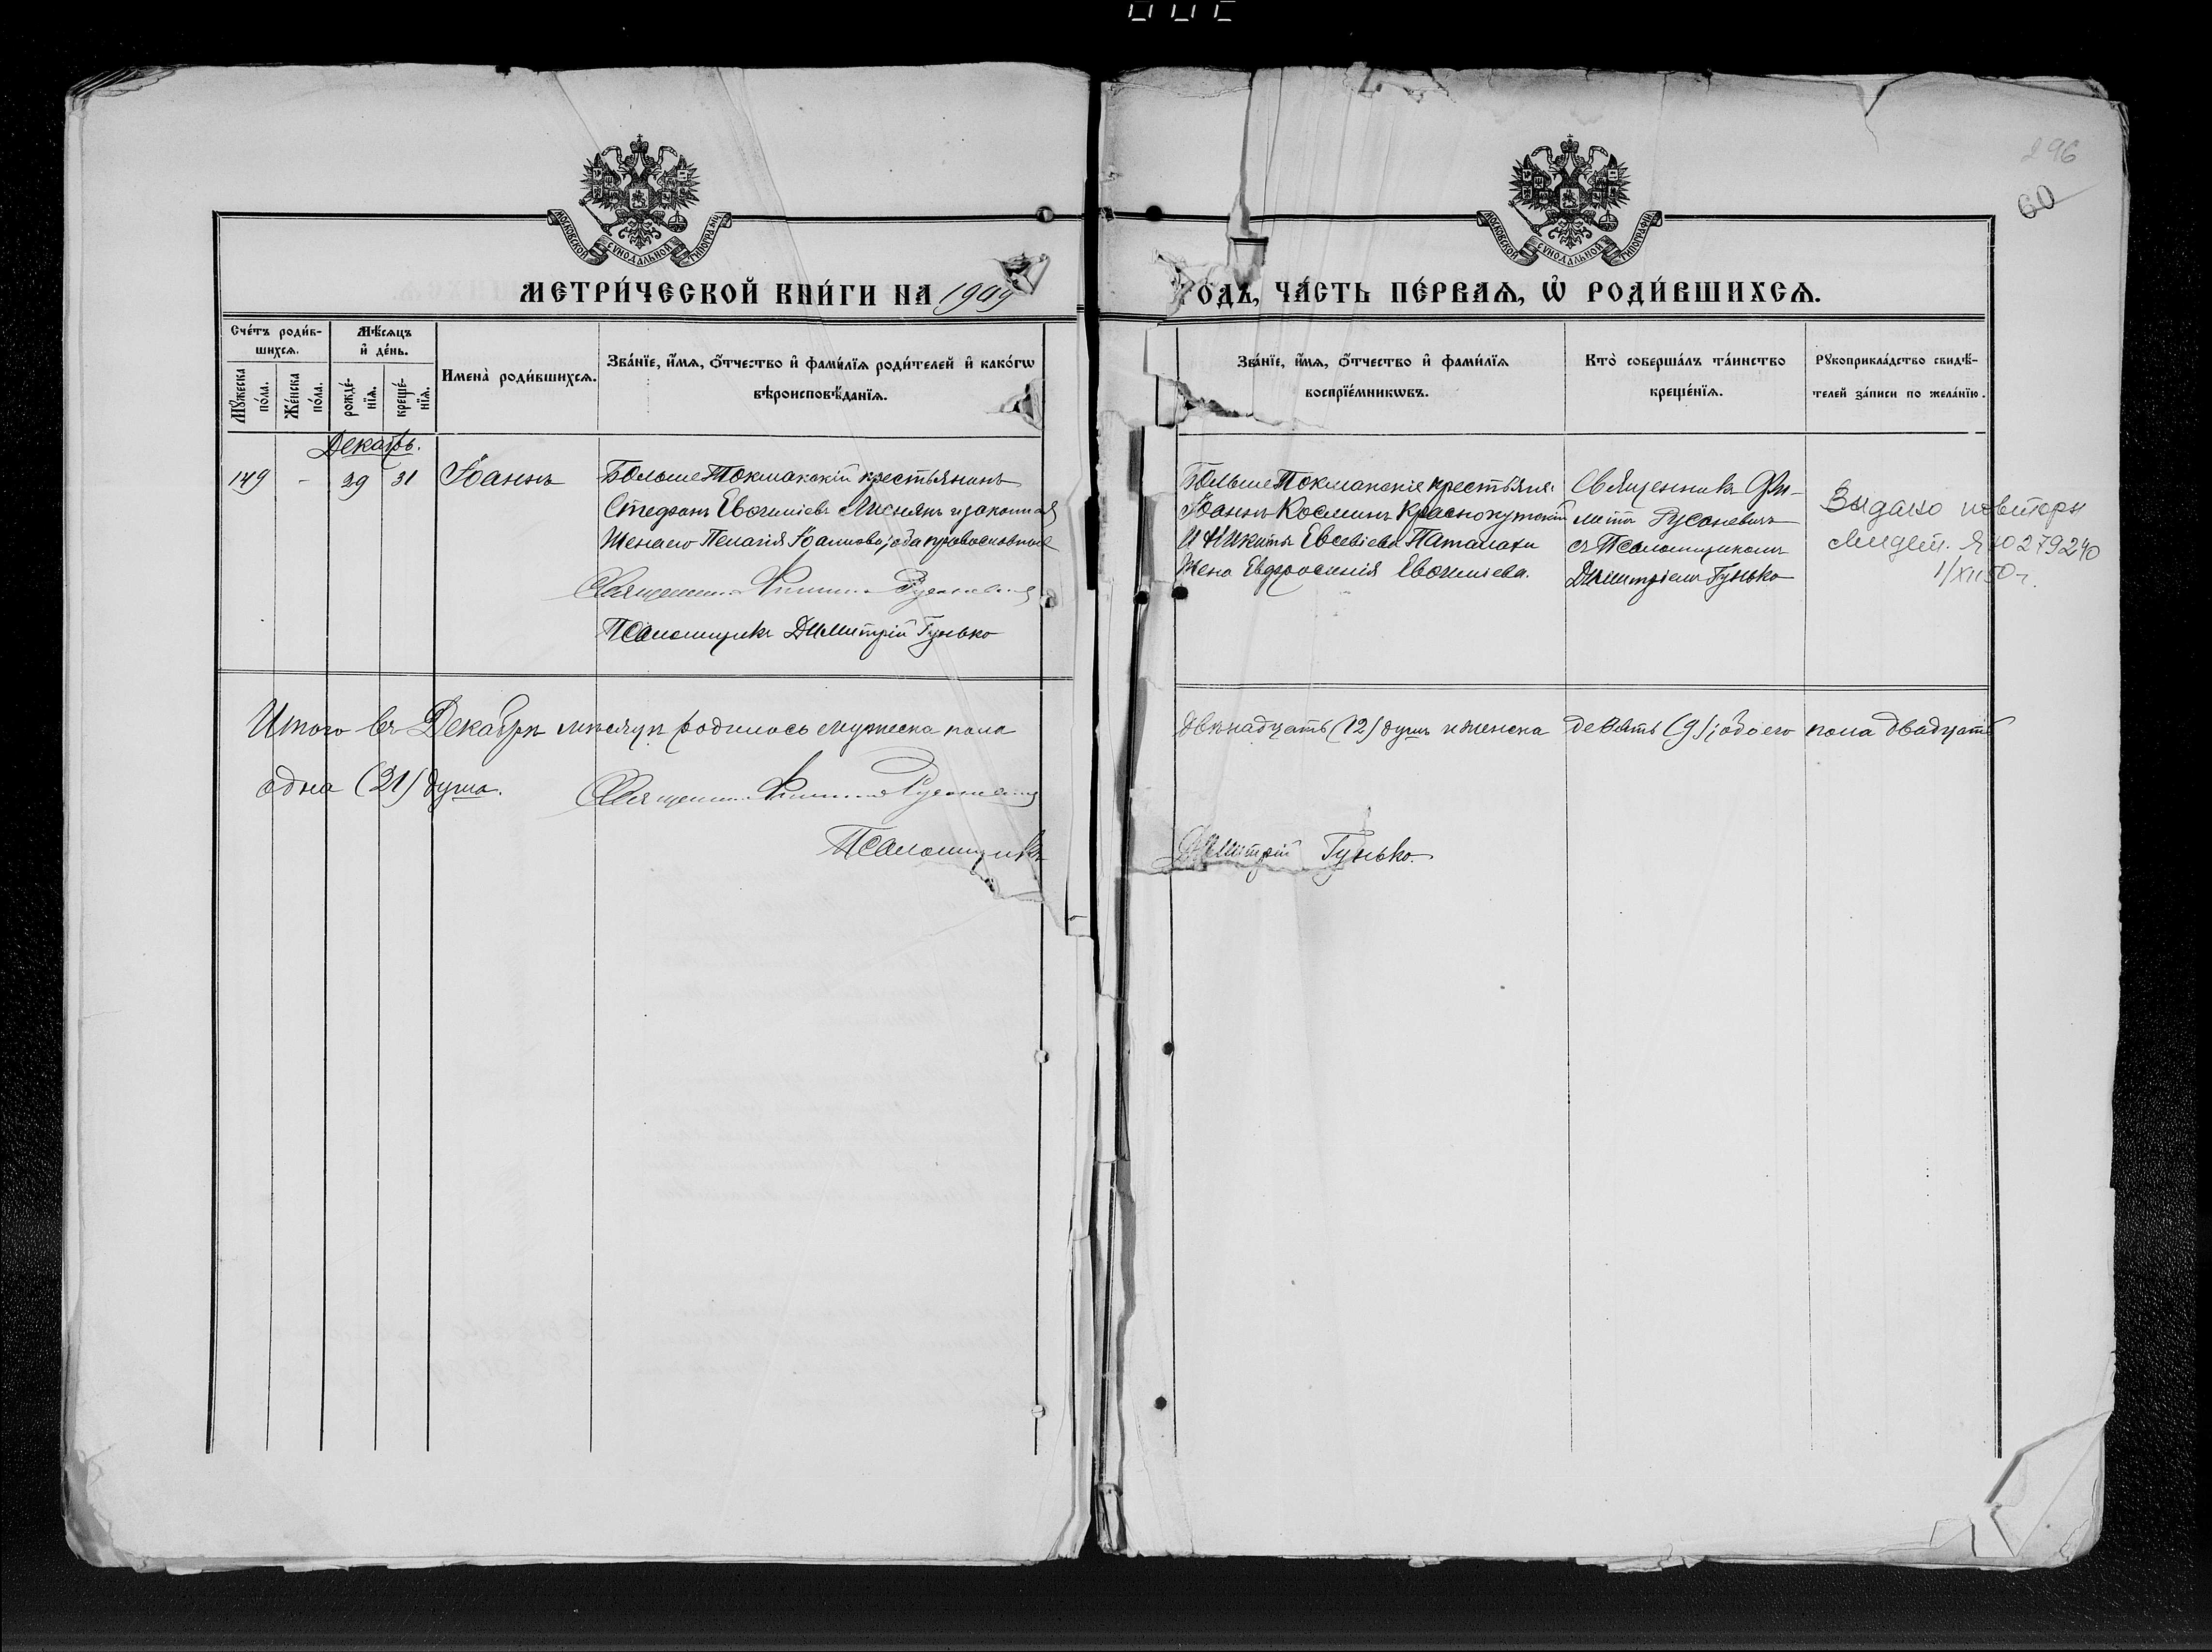 296
60
МОСКОВСКОЙ СѴНОДАЛЬНОЙ ТИПОГРАФІИ
МОСКОВСКОЙ СѴНОДАЛЬНОЙ ТИПОГРАФІИ
МЕТРИ́ЧЕСКОЙ КНИ́ГИ НА 1909
ГОДЪ, ЧА́СТЬ ПЕ́РВАѦ, Ѡ҆ РОДИ́ВШИХСѦ.
Сче́тъ роди́в-
шихсѧ.
Мꙋ́жеска по́ла.
Же́нска по́ла.
Мѣ́сѧцъ
и҆ де́нь.
рожде́-
нїѧ.
креще́-
нїѧ.
Имена̀ роди́вшихсѧ.
Зва́нїе, и҆́мѧ, ѻ҆́тчество и҆ фами́лїѧ роди́телей и҆ како́гѡ
вѣроисповѣ́данїѧ.
Зва́нїе, и҆́мѧ, ѻ҆́тчество и҆ фами́лїѧ
воспрїе́мникѡвъ.
Кто̀ соверша́лъ та́инство
креще́нїѧ.
Рꙋкоприкла́дство свидѣ́-
телей за́писи по жела́нїю.
Декабрь.
149 - 29 31 Іоаннъ
БольшеТокмакскій крестьянинъ
Стефанъ Евѳиміевъ и законная
жена его Пелагія Іоаннова, оба православные
Священникъ Филиппъ Русаневичъ
Псаломщикъ Димитрій Гунько
БольшеТокмакскіе крестьяне:
Іоаннъ Косминъ Краснокутскій
и Никиты Евсевіева Паталахи
жена Евфросинія Евѳиміева.
Священникъ Фи-
липпъ Русаневичъ
съ Псаломщикомъ
Димитріемъ Гунько
Видано повторн
свидет. 279240
1/XII 50 г.
Итого въ Декабрѣ мѣсяцѣ родилось мужеска пола
двѣнадцать (12) душъ и женска девять (9); обоего пола двадцать
одна (21) душа.
Священникъ Филиппъ Русаневичъ
Псаломщикъ
Димитрій Гунько.